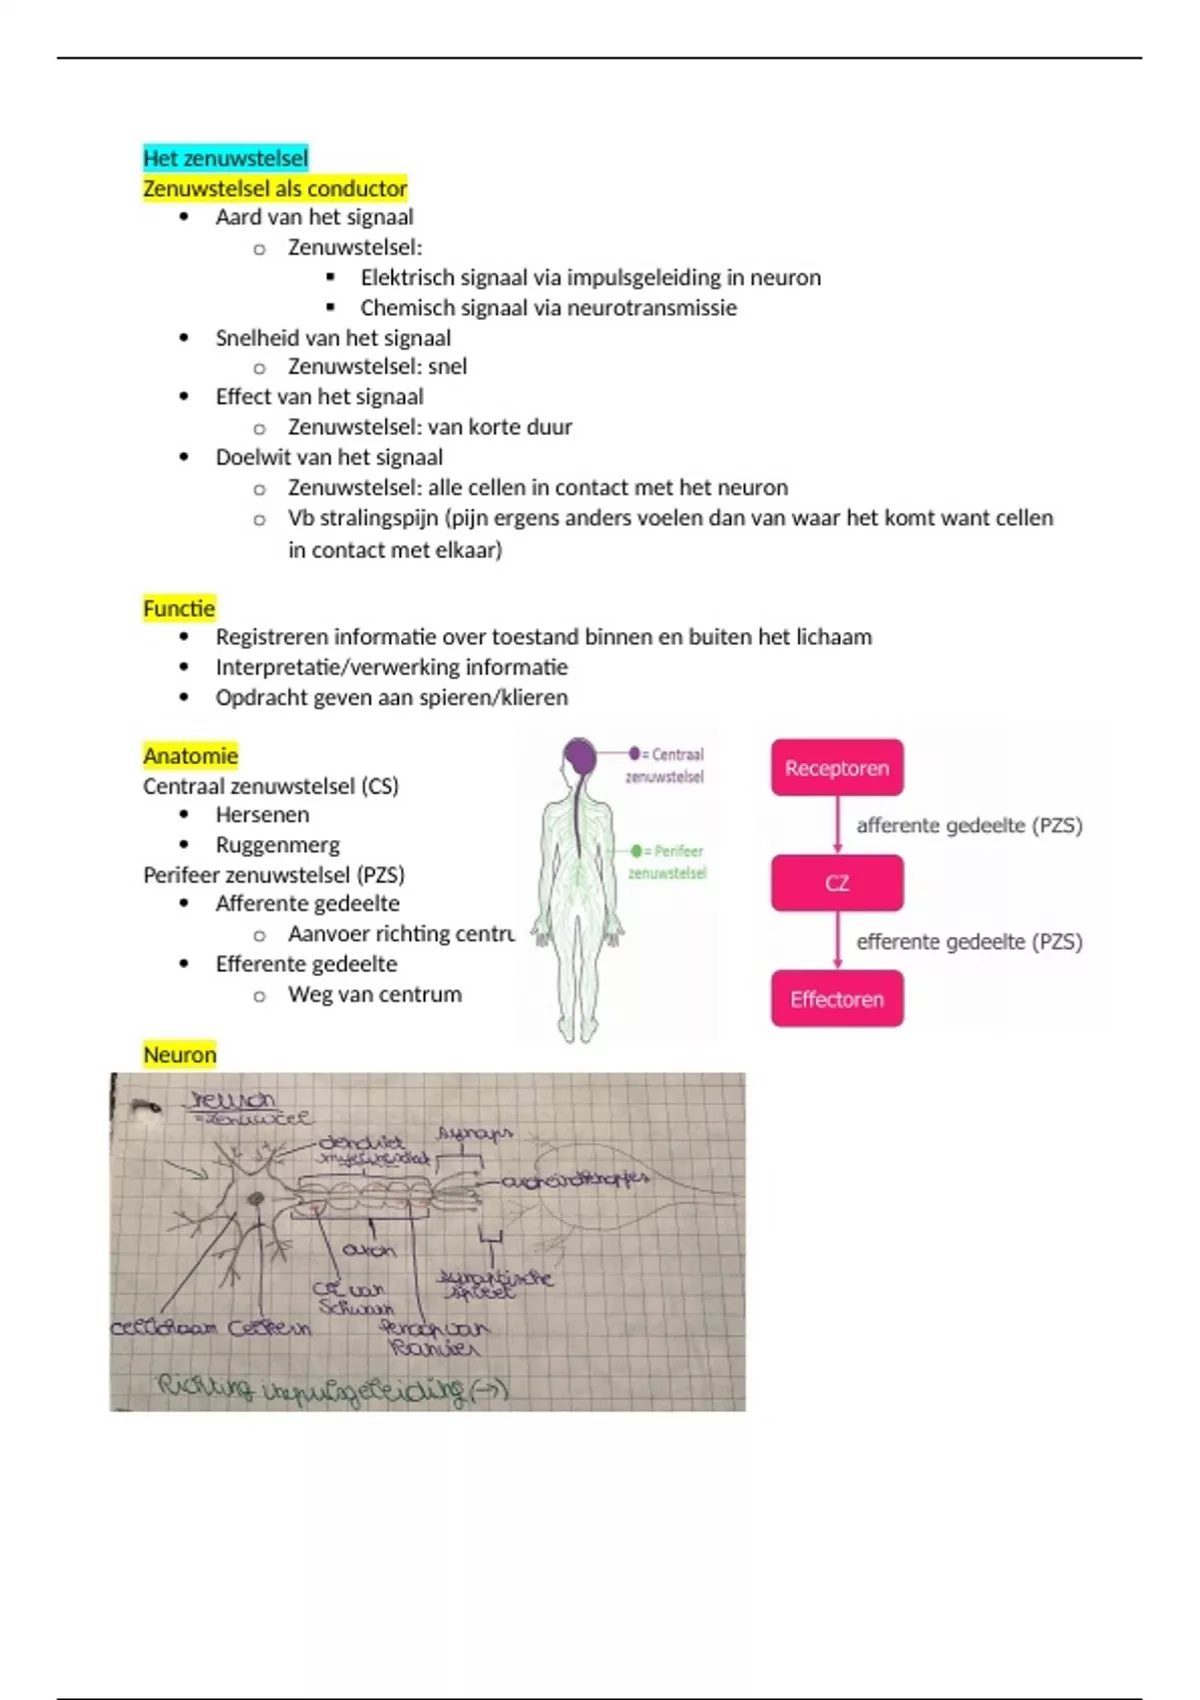 Het zenuwstelsel
Zenuwstelsel als conductor
• Aard van het signaal
o Zenuwstelsel:
▪ Elektrisch signaal via impulsgeleiding in neuron
▪ Chemisch signaal via neurotransmissie
• Snelheid van het signaal
o Zenuwstelsel: snel
• Effect van het signaal
o Zenuwstelsel: van korte duur
• Doelwit van het signaal
o Zenuwstelsel: alle cellen in contact met het neuron
o Vb stralingspijn (pijn ergens anders voelen dan van waar het komt want cellen
in contact met elkaar)
Functie
• Registreren informatie over toestand binnen en buiten het lichaam
• Interpretatie/verwerking informatie
• Opdracht geven aan spieren/klieren
Anatomie
Centraal zenuwstelsel (CS)
• Hersenen
• Ruggenmerg
Perifeer zenuwstelsel (PZS)
• Afferente gedeelte
o Aanvoer richting centru
• Efferente gedeelte
o Weg van centrum
= Centraal
zenuwstelsel
= Perifeer
zenuwstelsel
Receptoren
afferente gedeelte (PZS)
CZ
efferente gedeelte (PZS)
Effectoren
Neuron
neuron
=zenuwcel
dendriet
synaps
axon
cel van
Schwann
synaptische
spleet
cellichaam celkern
Ranvier
Richting impulsgeleiding (→)